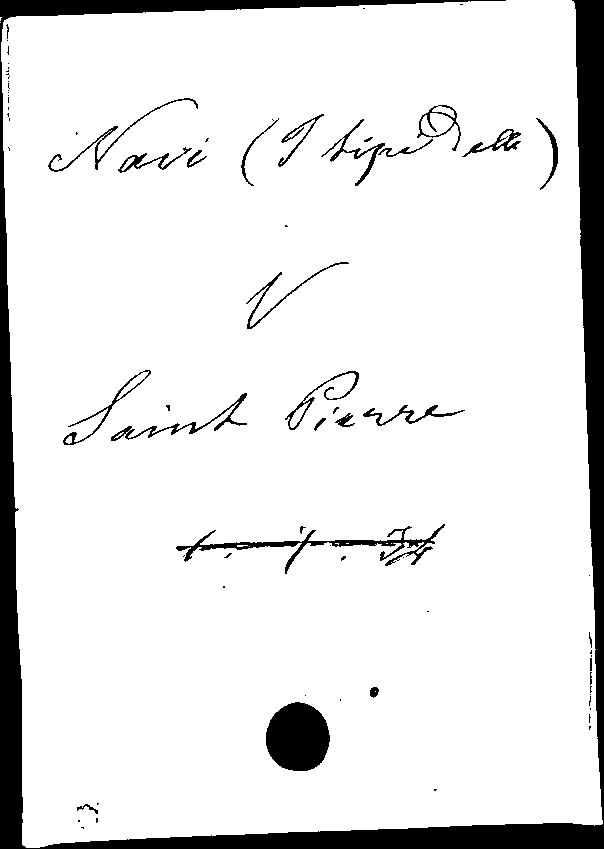 Navi (I tipi delle)
V
Saint Pierre